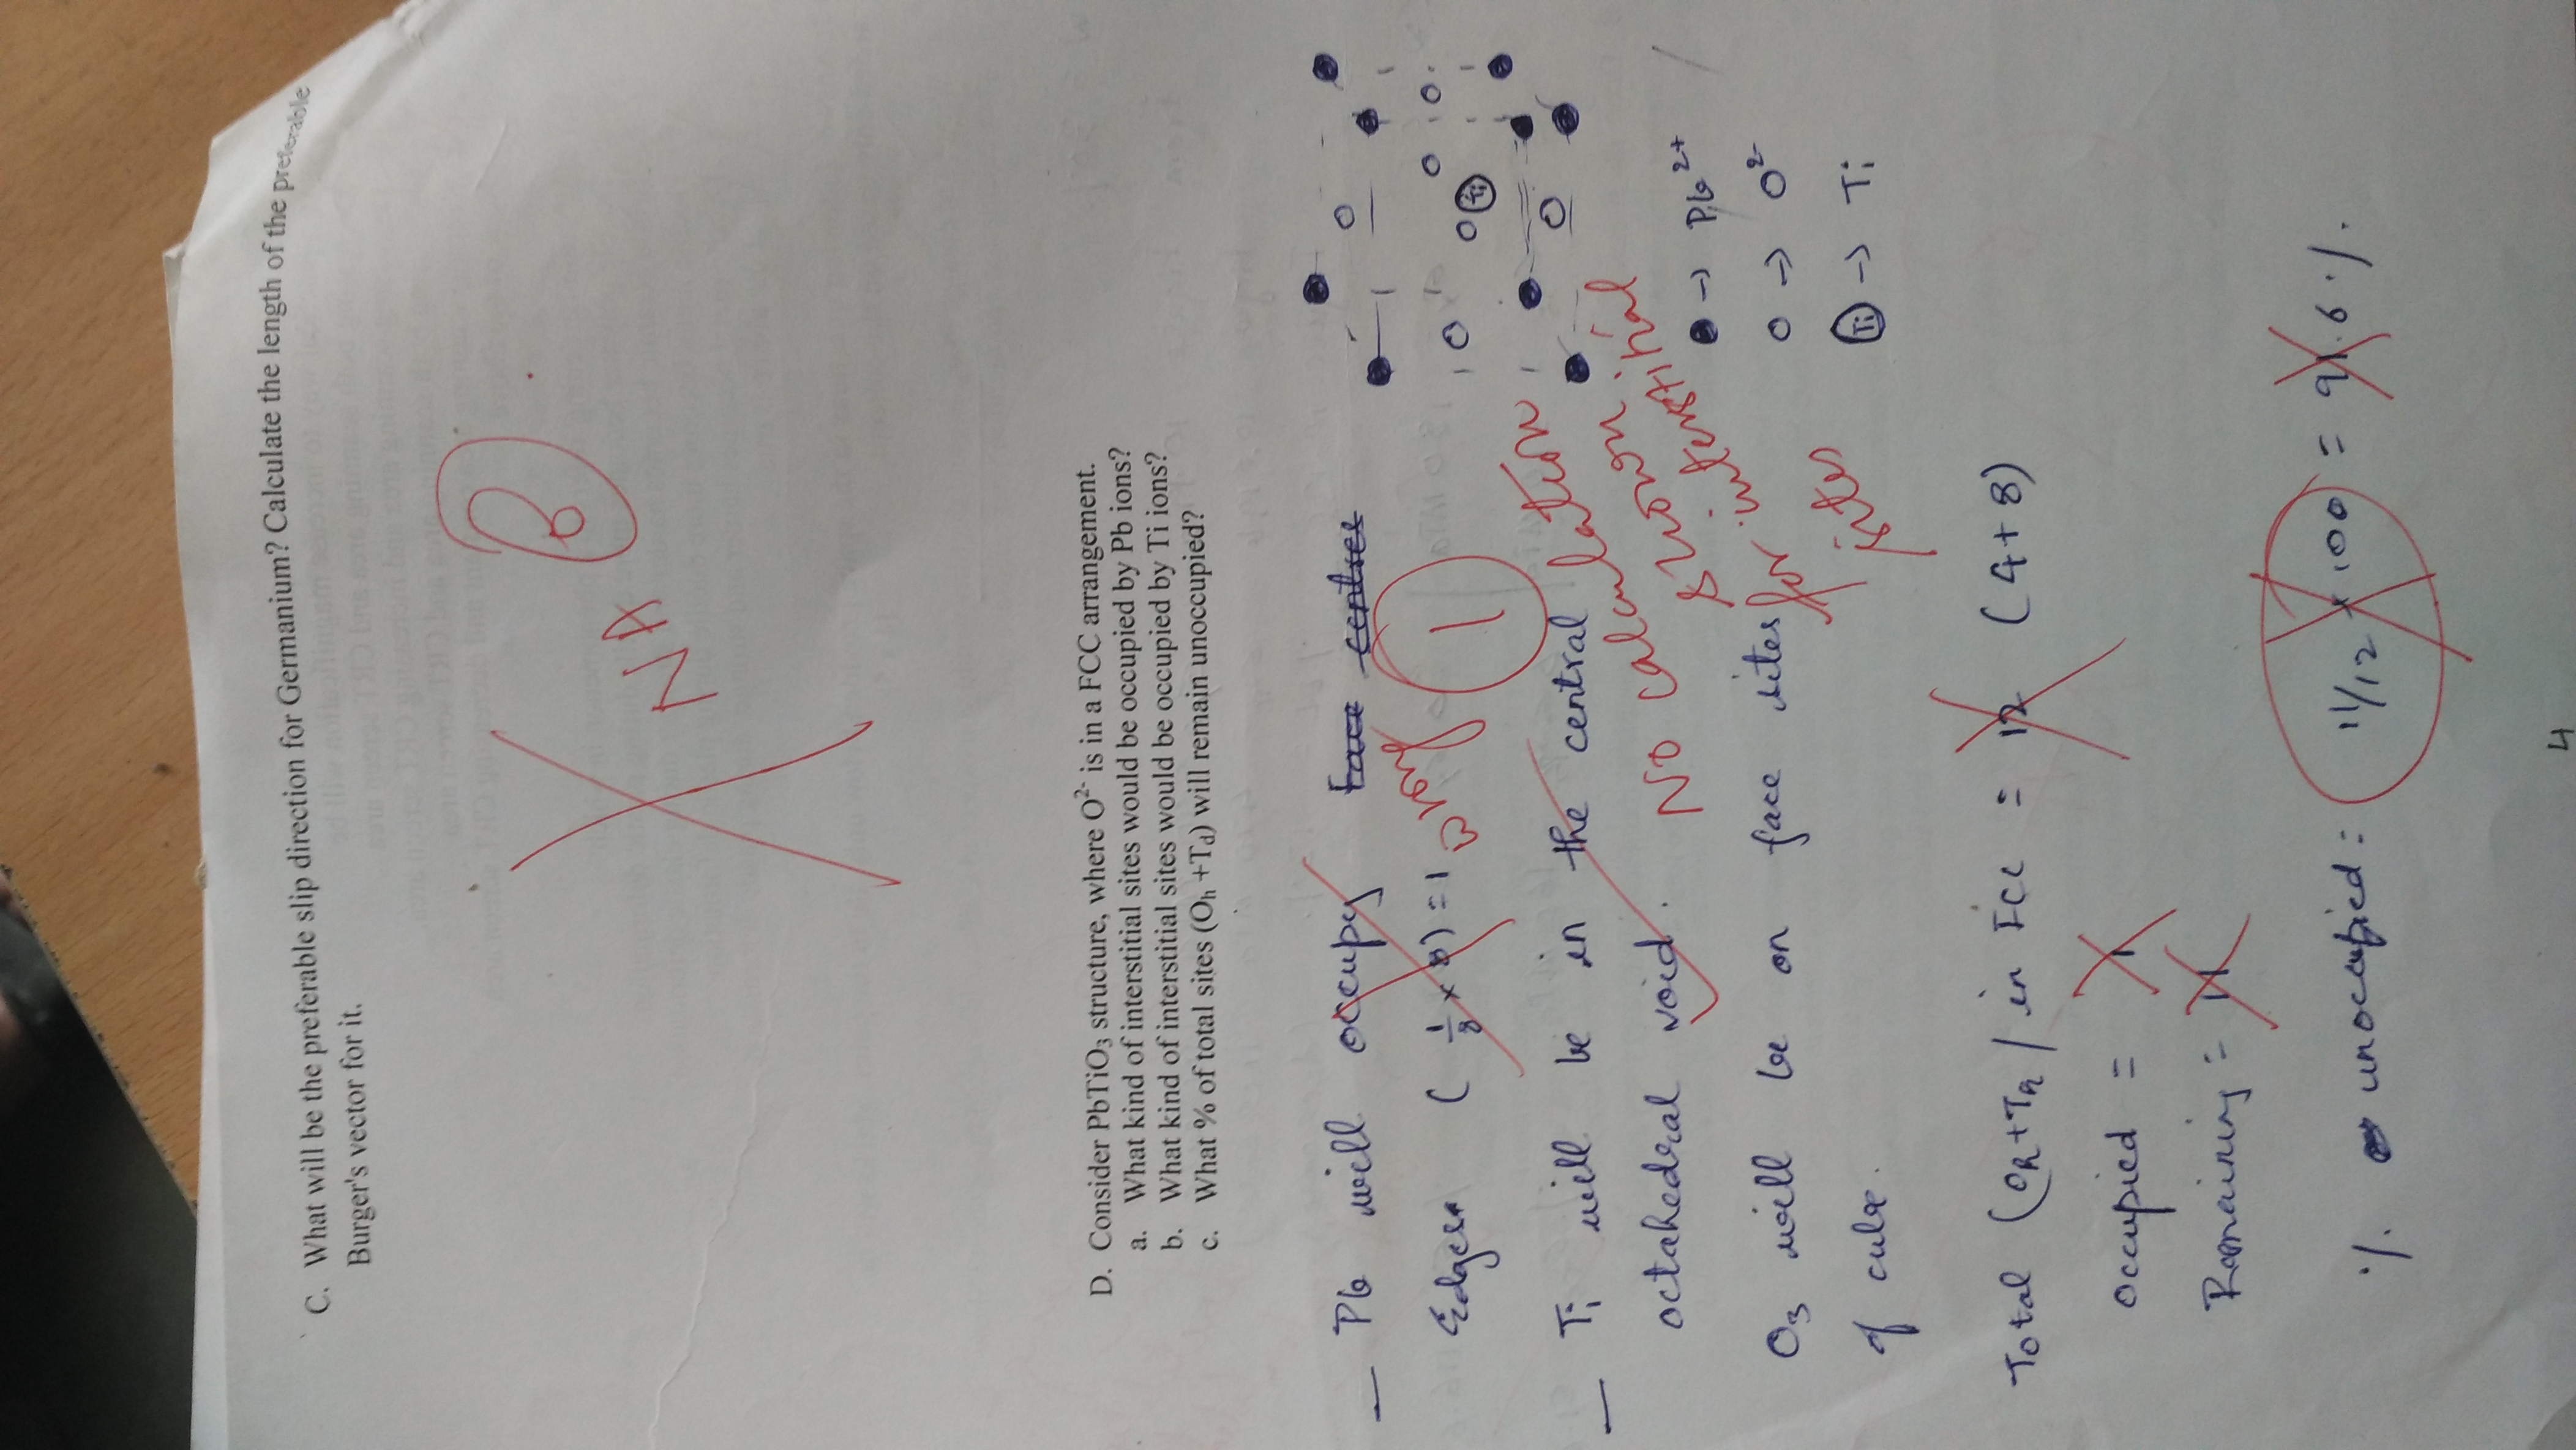 C. What will be the preferable slip direction for Germanium? Calculate the length of the preferable
Burger's vector for it.
0
NA
D. Consider PbTiO₃ structure, where O²⁻ is in a FCC arrangement.
a. What kind of interstitial sites would be occupied by Pb ions?
b. What kind of interstitial sites would be occupied by Ti ions?
c. What % of total sites (Oₕ +T_d) will remain unoccupied?
— Pb will occupy face centres
Edges ( 1/8 × 8) = 1 wrong
1
— Ti will be in the central
octahedral void.
No calculation
shown
for interstitial
sites
O₃ will be on face sites
of cube.
Ti
● → Pb²⁺
O → O²⁻
Ti → Ti
Total (Oh+Th) in FCC = 12 (4+8)
occupied = 1
Remaining = 11
% unoccupied = 11/12 × 100 = 91.6 %.
4